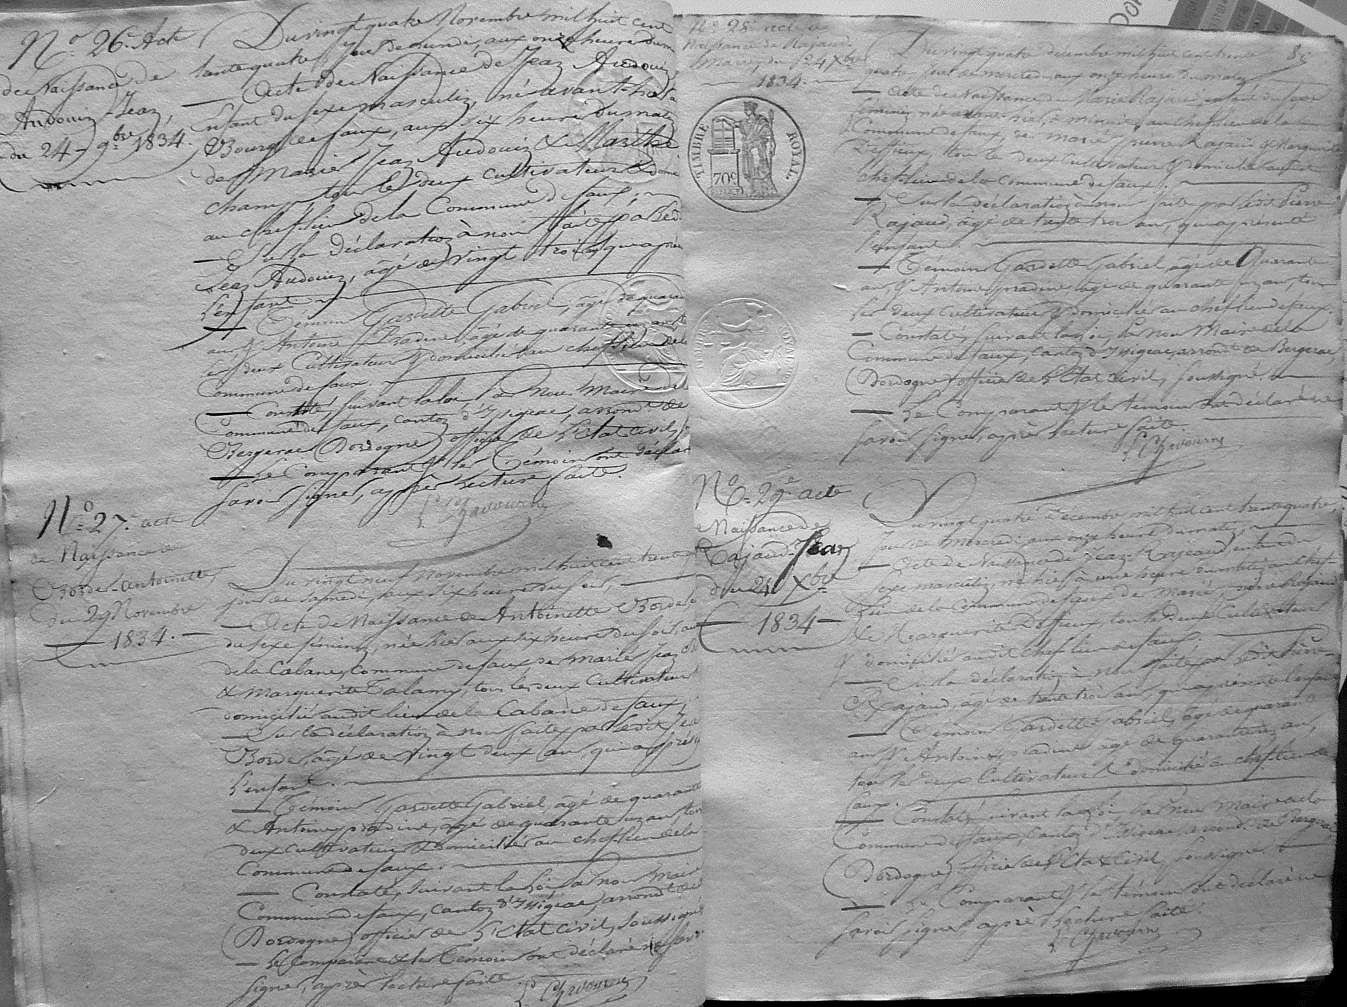 N.º 26.e Acte
de Naissance de
Audouin Jean
du 24 9.bre 1834.
Du vingt quatre Novembre mil huit cent
trente quatre, jour de Lundi, aux onze heures du
— Acte de Naissance de Jean Audouin
Enfant du sexe masculin, né avant-hier
Bourg de faux, aux six heures du matin
de Marié Jean Audouin & Marthe
champ tous les deux Cultivateurs &
au cheflieu de la Commune de faux,
— Sur la déclaration à nous faite par ledit
Jean Audouin, âgé de vingt trois
l'enfant
— Témoins Gardette Gabriel, âgé de quarante
ans & Antoine Pradine âgé de quarante un ans
les deux Cultivateurs & domiciliés au cheflieu de la
Commune de faux.
— Constaté, suivant la loi, par Nous Maire de la
Commune de faux, canton d'Issigeac, arrond.t de
Bergerac (Dordogne) officier de l'Etat Civil,
— Le Comparant & les Témoins ont déclaré
savoir signer, après lecture faite.
N.º 27.e acte
de Naissance de
Borde Antoinette
du 29 Novembre
— 1834. —
Du vingt neuf Novembre mil huit cent trente
jour de samedi, aux six heures du soir,
— Acte de Naissance de Antoinette Borde
du sexe féminin, née hier aux six heures du soir, au
de la Cabane, Commune de faux de Marié Jean
& Marguerite Talamy, tous les deux Cultivateurs
domiciliés audit lieu de la Cabane de faux,
— Sur la déclaration à nous faite par ledit Jean
Borde, âgé de vingt deux ans, qui a présenté
l'enfant.
— Témoins Gardette Gabriel, âgé de quarante
& Antoine pradine, âgé de quarante un ans, tous
deux Cultivateurs & domiciliés au cheflieu de la
Commune de faux.
— Constaté, suivant la loi, par nous Maire
Commune de faux, canton d'Issigeac, arrond.t de
(Dordogne) officier de l'Etat Civil, soussigné
— Le Comparant & les Témoins ont déclaré ne savoir
signer, après lecture faite
N.º 28.e acte de
Naissance de Rajaud
Marie, du 24 X.bre
1834.
TIMBRE ROYAL
70c
Du vingt quatre décembre mil huit cent trente
quatre, jour de mercredi aux onze heures du matin
— Acte de Naissance de Marie Rajaud, enfant du sexe
féminin, née au cheflieu de la
Commune de faux, de Marié Pierre Rajaud & Marguerite
Deffieux, tous les deux Cultivateurs & domiciliés audit
cheflieu de la Commune de faux;
— Sur la déclaration à nous faite par ledit Pierre
Rajaud, âgé de trente trois ans, qui a présenté
l'enfant.
— Témoins Gardette Gabriel, âgé de Quarante
ans & Antoine Pradine âgé de quarante un ans, tous
les deux Cultivateurs & domiciliés au cheflieu de faux,
— Constaté, suivant la loi, par Nous Maire de la
Commune de faux, canton d'Issigeac, arrond.t de Bergerac
(Dordogne) officier de l'Etat Civil, soussigné
— Le Comparant & les témoins ont déclaré ne
savoir signer, après lecture faite.
N.º 29.e acte
de Naissance de
Rajaud Jean
du 24 X.bre
— 1834 —
Du vingt quatre Décembre mil huit cent trente quatre,
jour de Mercredi, aux onze heures du matin,
— Acte de Naissance de Jean Rajaud, enfant du
sexe masculin, né hier à une heure au chef
lieu de la Commune de faux de Marié, Pierre Rajaud
& Marguerite Deffieux, tous les deux Cultivateurs
& domiciliés audit cheflieu de faux.
— Sur la déclaration à Nous faite par ledit Pierre
Rajaud, âgé de trente trois ans, qui a présenté l'enfant
— Témoins Gardette Gabriel, âgé de quarante
ans & Antoine pradine âgé de quarante un ans,
tous les deux Cultivateurs & domiciliés au cheflieu de
faux.
— Constaté, suivant la loi, par Nous Maire de la
Commune de faux, Canton d'Issigeac, arrond.t de Bergerac
(Dordogne) officier de l'Etat Civil, soussigné
— Le Comparant & les témoins ont déclaré ne
savoir signer après Lecture faite